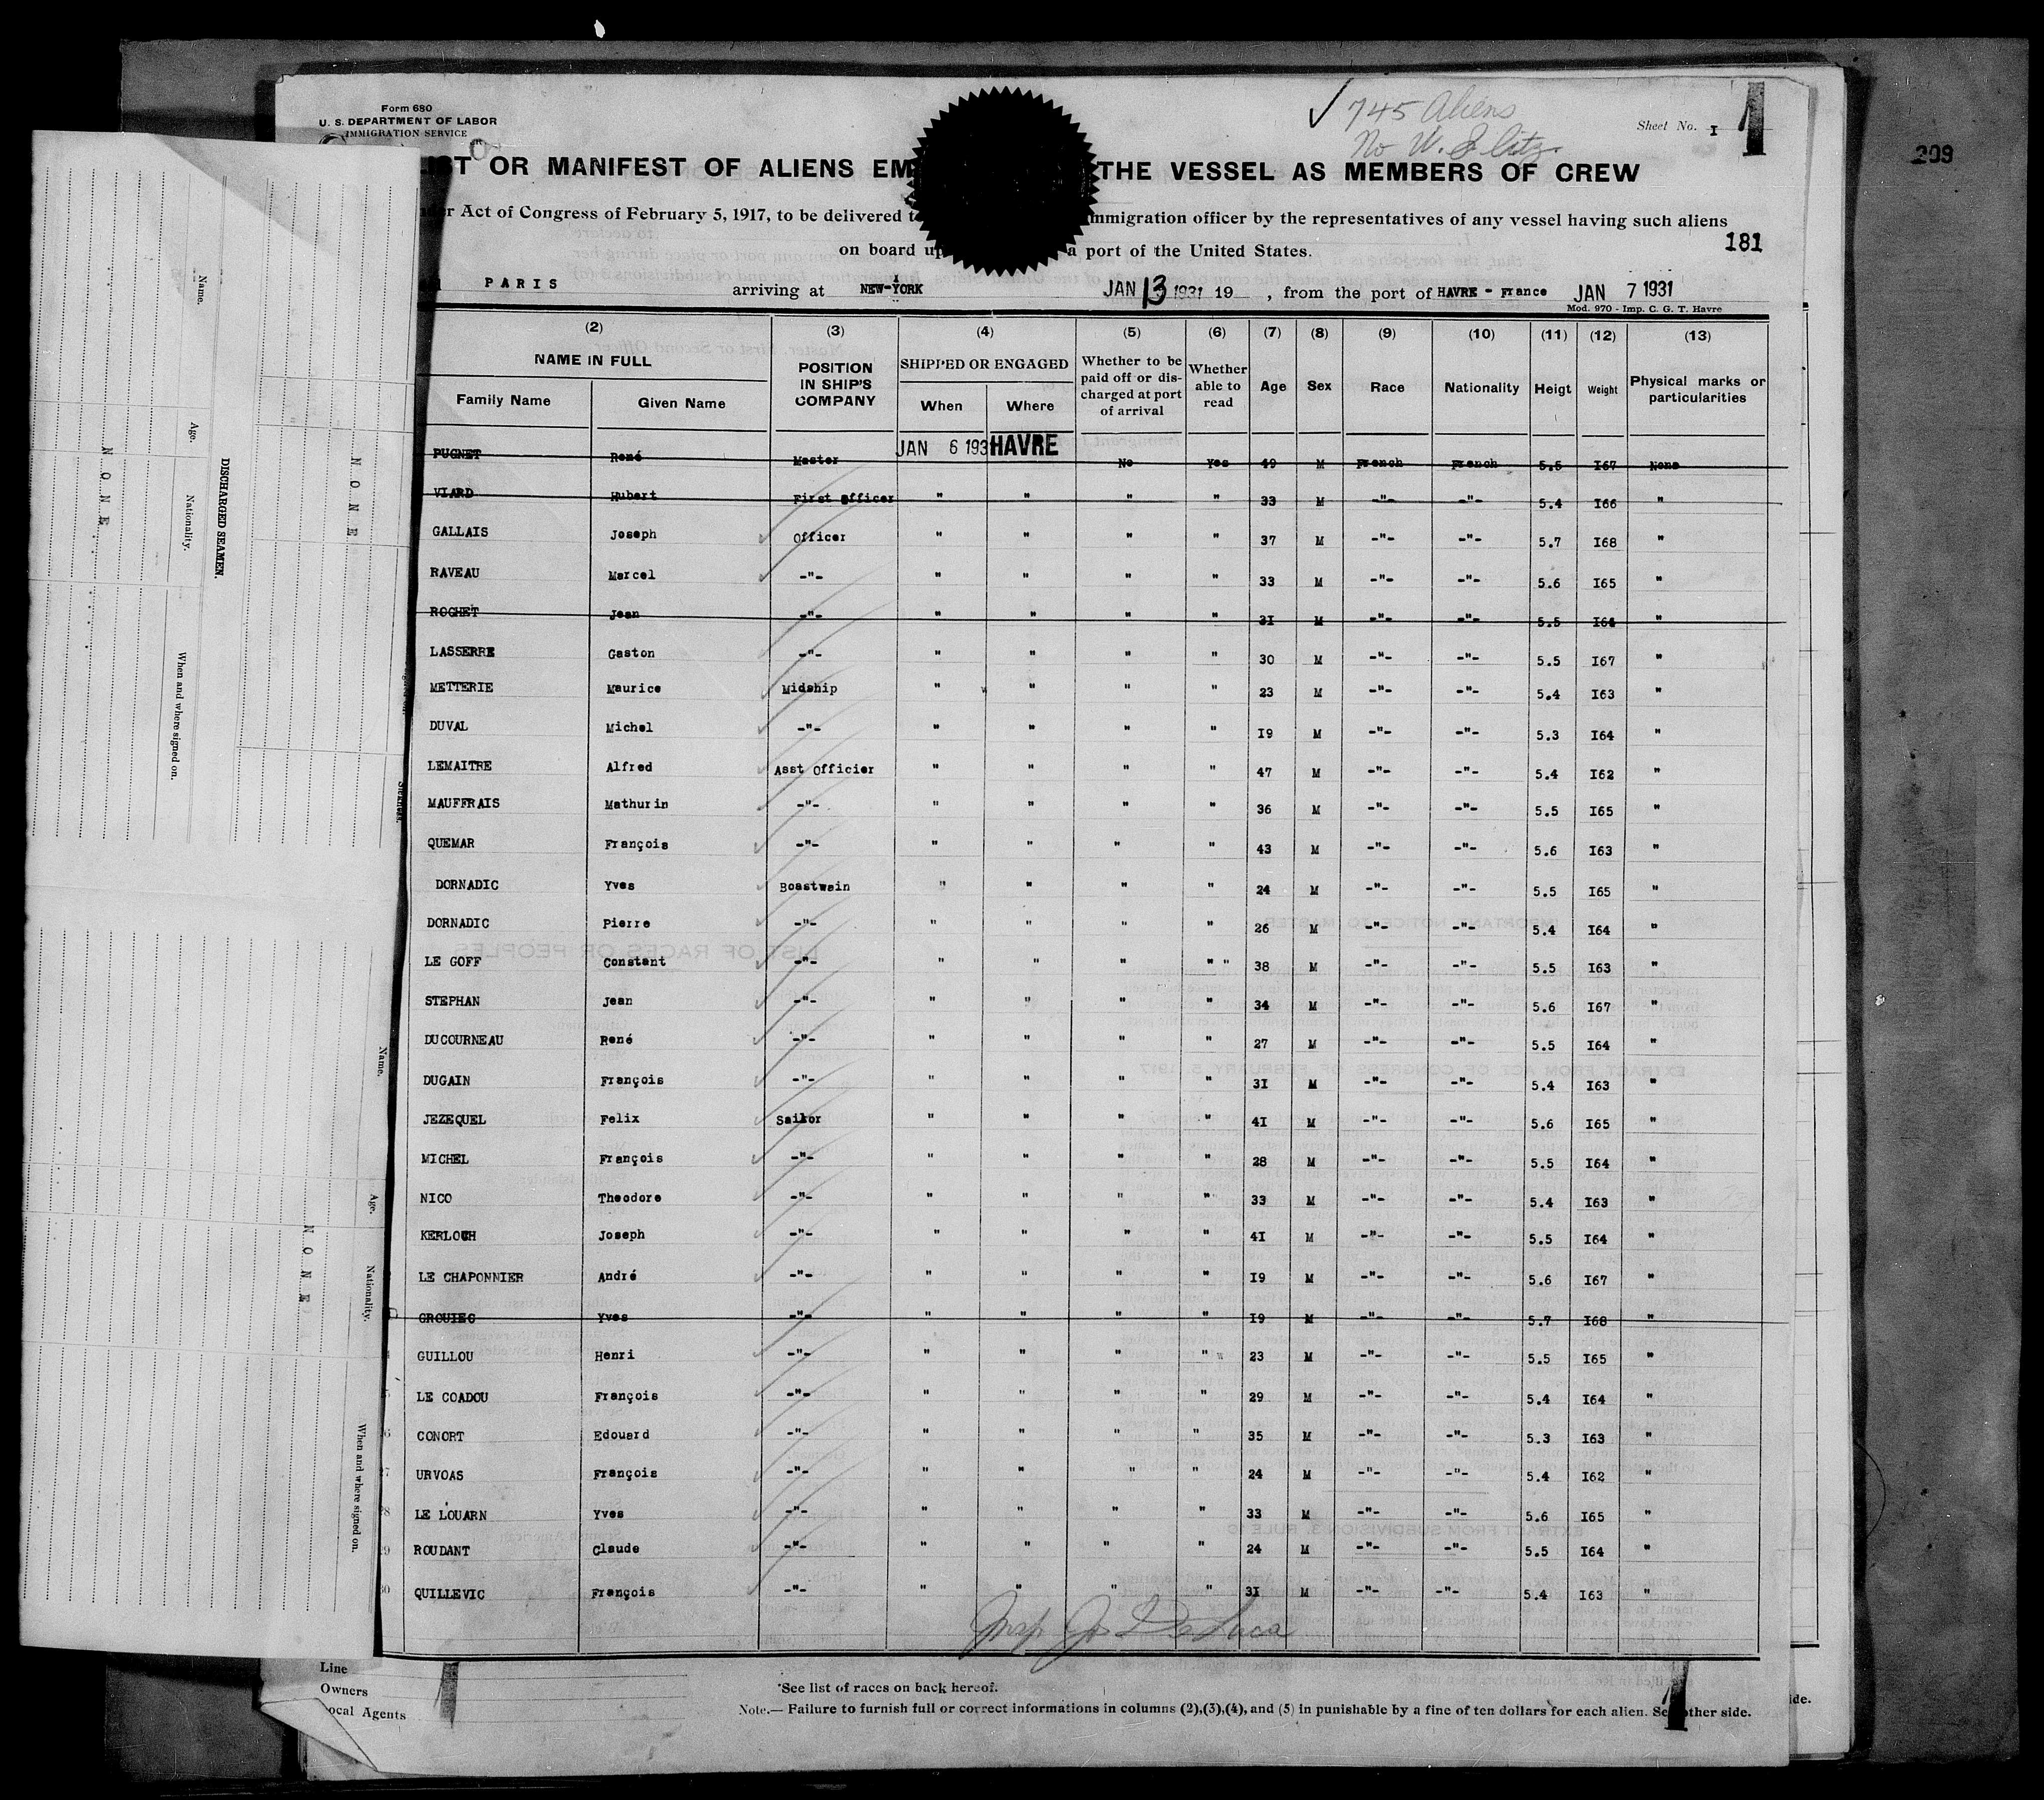 Form 680
U. S. DEPARTMENT OF LABOR
IMMIGRATION SERVICE
✓ 745 Aliens
No W.
Sheet No. I
1
209
IST OR MANIFEST OF ALIENS EM THE VESSEL AS MEMBERS OF CREW
der Act of Congress of February 5, 1917, to be delivered t mmigration officer by the representatives of any vessel having such aliens
on board up a port of the United States.
181
PARIS arriving at NEW-YORK JAN 13 1931 19 , from the port of HAVRE - France JAN 7 1931
Mod. 970 - Imp. C. G. T. Havre
(2) (3) (4) (5) (6) (7) (8) (9) (10) (11) (12) (13)
NAME IN FULL POSITION IN SHIP'S COMPANY SHIPPED OR ENGAGED Whether to be paid off or discharged at port of arrival Whether able to read Age Sex Race Nationality Heigt Weight Physical marks or particularities
Family Name Given Name When Where
PUGNET René Master JAN 6 193 HAVRE No Yes 49 M French French 5.5 I67 None
VIARD Hubert First officer " " " " 33 M -"- -"- 5.4 I66 "
GALLAIS Joseph Officer " " " " 37 M -"- -"- 5.7 I68 "
RAVEAU Marcel -"- " " " " 33 M -"- -"- 5.6 I65 "
ROCHET Jean -"- " " " " 3I M -"- -"- 5.5 I64 "
LASSERRE Gaston -"- " " " " 30 M -"- -"- 5.5 I67 "
METTERIE Maurice Midship " " " " 23 M -"- -"- 5.4 I63 "
DUVAL Michel -"- " " " " I9 M -"- -"- 5.3 I64 "
LEMAITRE Alfred Asst Officier " " " " 47 M -"- -"- 5.4 I62 "
MAUFFRAIS Mathurin -"- " " " " 36 M -"- -"- 5.5 I65 "
QUEMAR François -"- " " " " 43 M -"- -"- 5.6 I63 "
DORNADIC Yves Boastwain " " " " 24 M -"- -"- 5.5 I65 "
DORNADIC Pierre -"- " " " " 26 M -"- -"- 5.4 I64 "
LE GOFF Constant -"- " " " " " 38 M -"- -"- 5.5 I63 "
STEPHAN Jean -"- " " " " 34 M -"- -"- 5.6 I67 "
DUCOURNEAU René -"- " " " " 27 M -"- -"- 5.5 I64 "
DUGAIN François -"- " " " " 3I M -"- -"- 5.4 I63 "
JEZEQUEL Felix Sailor " " " " 4I M -"- -"- 5.6 I65 "
MICHEL François -"- " " " " 28 M -"- -"- 5.5 I64 "
NICO Theodore -"- " " " " 33 M -"- -"- 5.4 I63 "
KERLOCH Joseph -"- " " " " 4I M -"- -"- 5.5 I64 "
LE CHAPONNIER André -"- " " " " I9 M -"- -"- 5.6 I67 "
GROUIEC Yves -"- " " " " I9 M -"- -"- 5.7 I68 "
GUILLOU Henri -"- " " " " 23 M -"- -"- 5.5 I65 "
LE COADOU François -"- " " " " 29 M -"- -"- 5.4 I64 "
CONORT Edouard -"- " " " " 35 M -"- -"- 5.3 I63 "
URVOAS François -"- " " " " 24 M -"- -"- 5.4 I62 "
LE LOUARN Yves -"- " " " " 33 M -"- -"- 5.6 I65 "
ROUDANT Claude -"- " " " " 24 M -"- -"- 5.5 I64 "
QUILLEVIC François -"- " " " " 3I M -"- -"- 5.4 I63 "
Insp Jos DeLuca
Line
Owners
ocal Agents
*See list of races on back hereof.
Note.— Failure to furnish full or correct informations in columns (2),(3),(4), and (5) in punishable by a fine of ten dollars for each alien. See other side.
ide.
1
DISCHARGED SEAMEN.
Name. Age. Nationality. When and where signed on.
NONE
NONE
Name. Age. Nationality. When and where signed on.
NONE